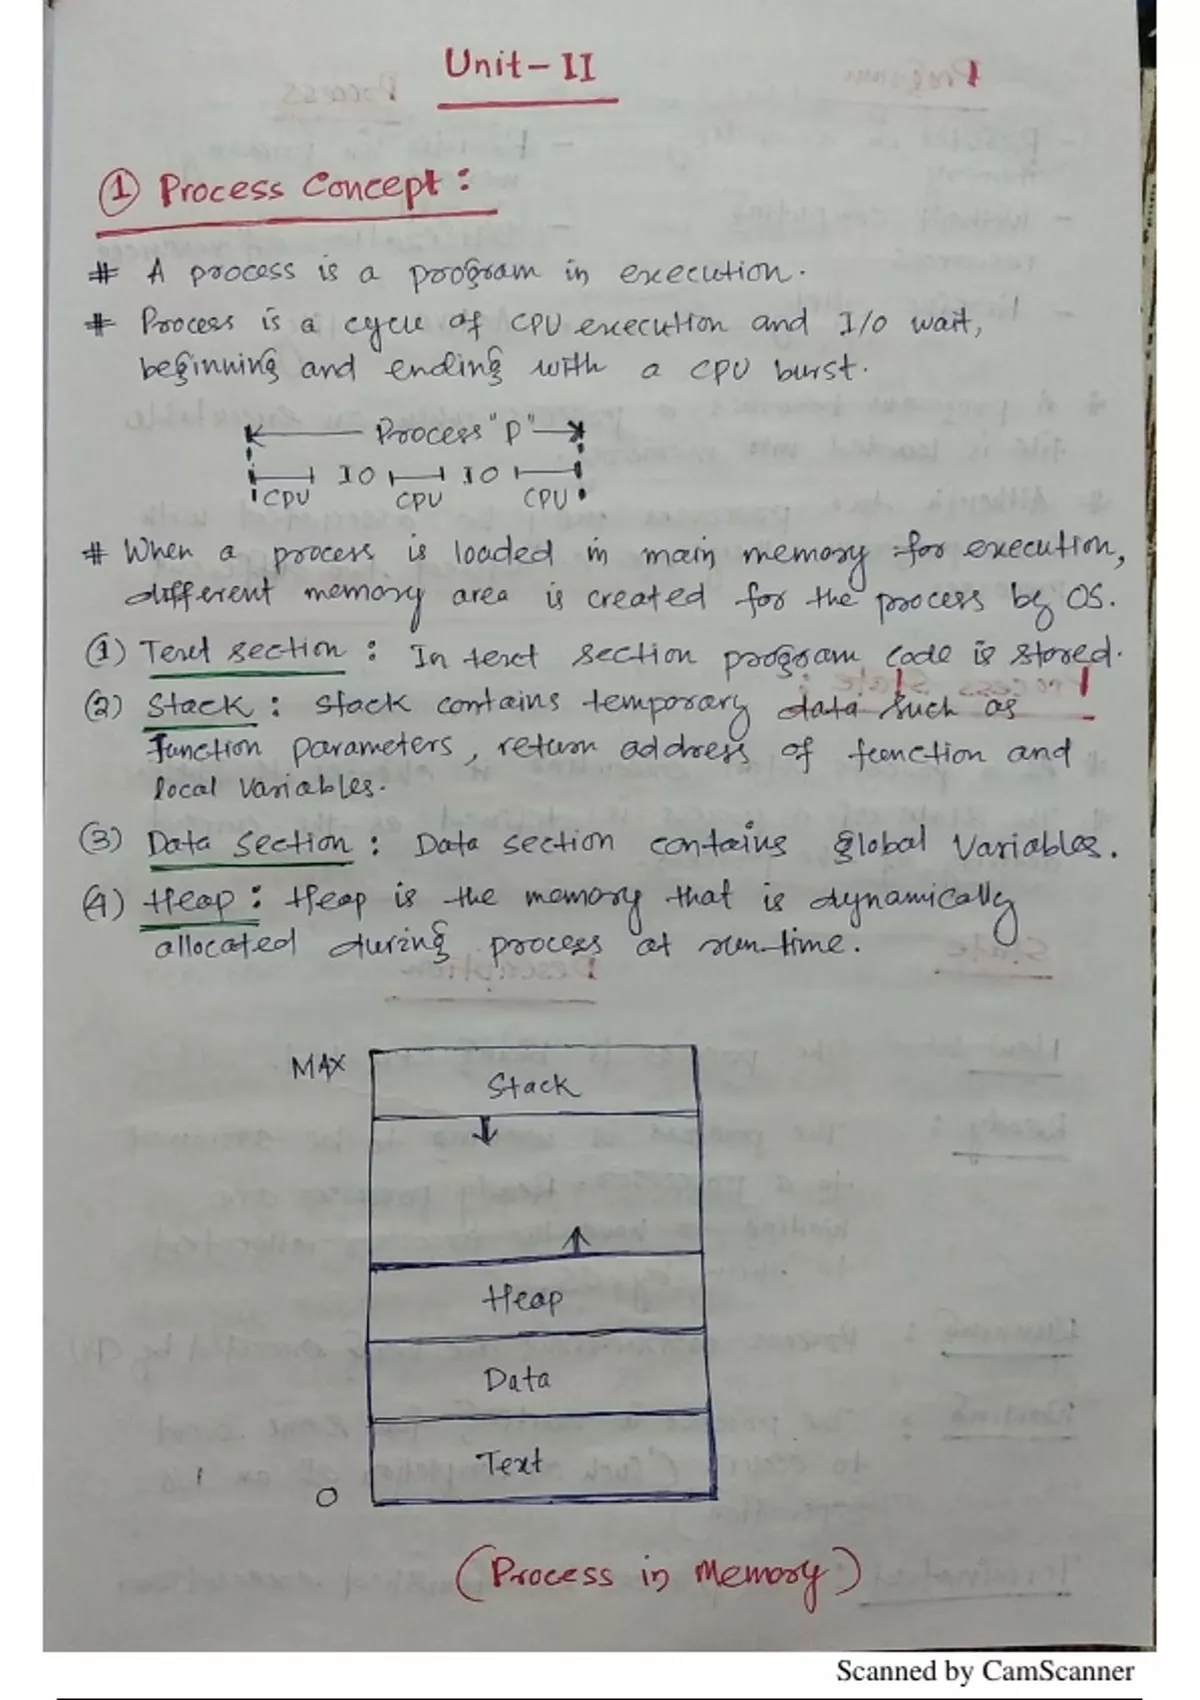 Unit-II
① Process Concept :
# A process is a program in execution.
# Process is a cycle of CPU execution and I/O wait,
beginning and ending with a CPU burst.
Process "P"
IO IO
CPU CPU CPU
# When a process is loaded in main memory for execution,
different memory area is created for the process by OS.
(1) Text section : In text section program code is stored.
(2) Stack : Stack contains temporary data such as
function parameters, return address of function and
local variables.
(3) Data section : Data section contains global variables.
(4) Heap : Heap is the memory that is dynamically
allocated during process at run-time.
MAX
Stack
Heap
Data
Text
0
(Process in memory)
Scanned by CamScanner